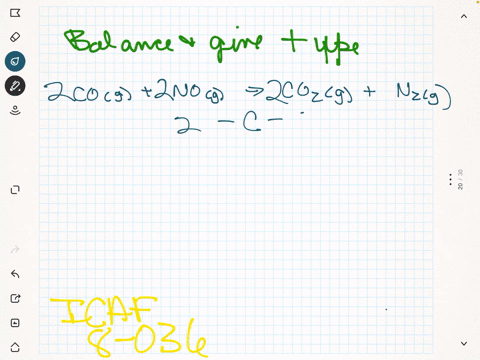 Balance & give type
2CO(g) + 2NO(g) → 2CO₂(g) + N₂(g)
2 - C -
ICAF
8-036
20 / 30